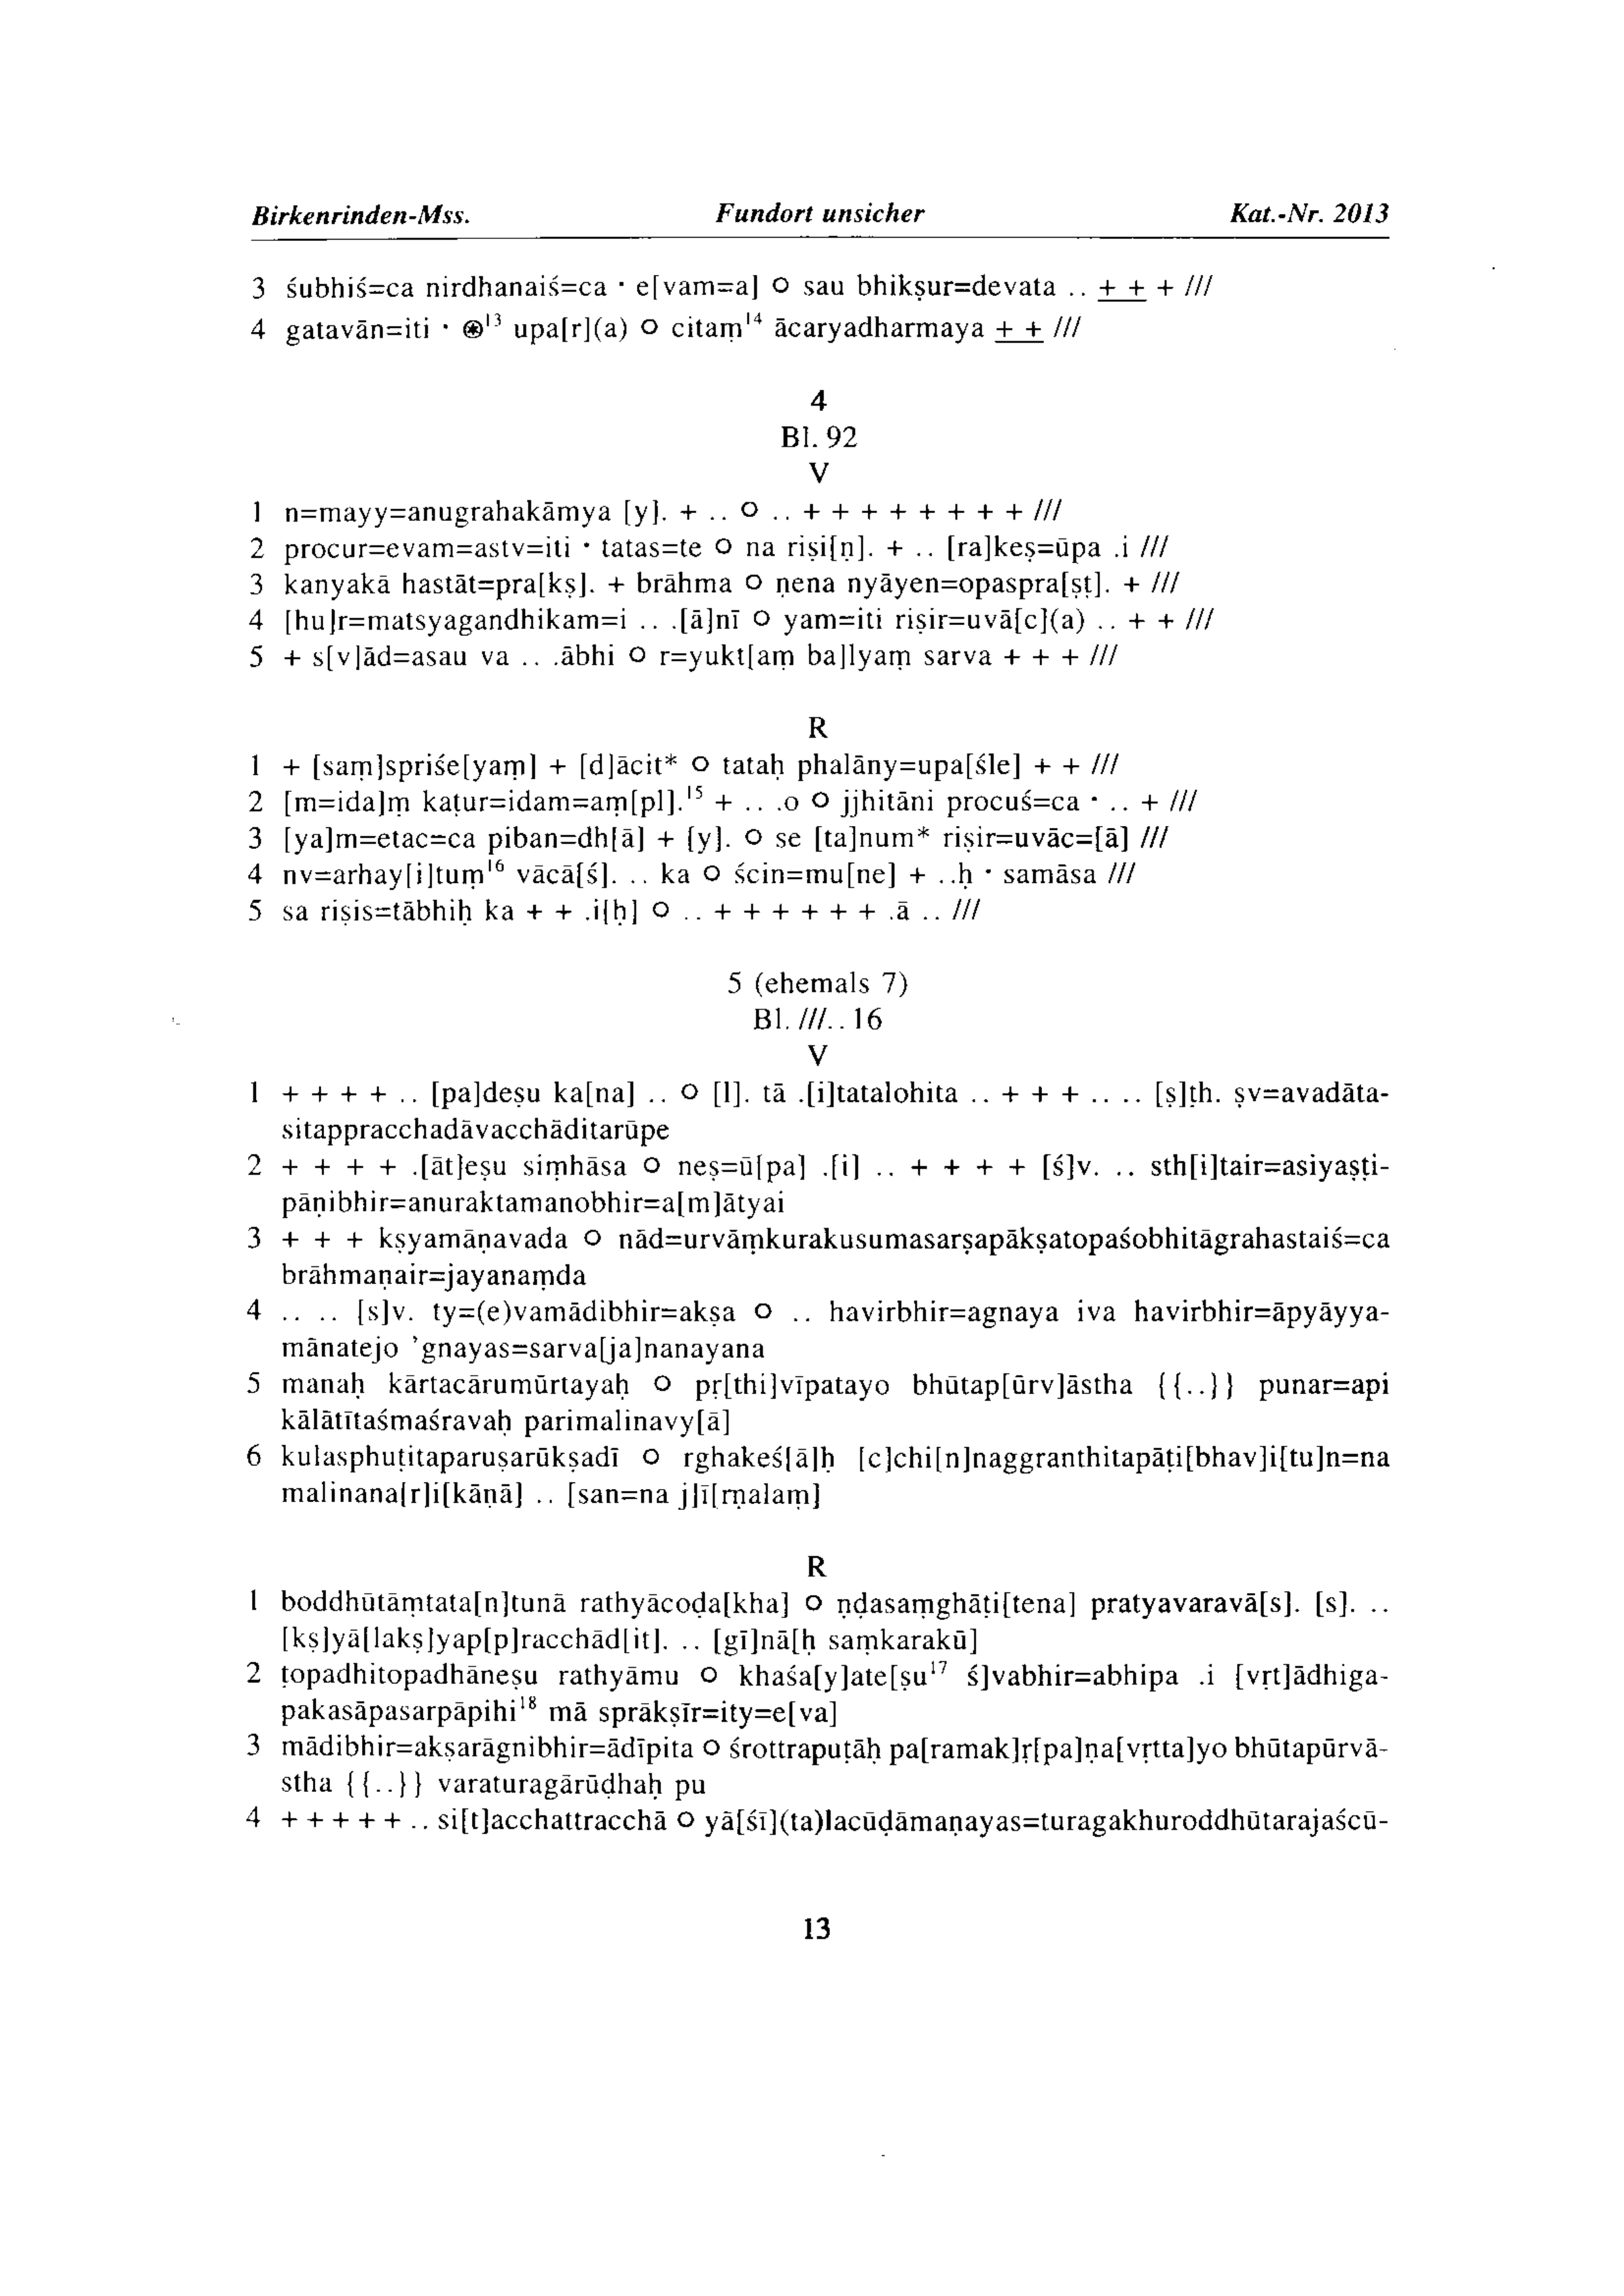 Birkenrinden-Mss. Fundort unsicher Kat.-Nr. 2013
3 śubhiś=ca nirdhanaiś=ca · e[vam=a] O sau bhikṣur=devata .. + + + ///
4 gatavān=iti · ⊛¹³ upa[r](a) O citaṃ¹⁴ ācaryadharmaya + + ///
4
Bl. 92
V
1 n=mayy=anugrahakāmya [y]. + .. O .. + + + + + + + + ///
2 procur=evam=astv=iti · tatas=te O na riṣi[ṇ]. + .. [ra]keṣ=ūpa .i ///
3 kanyakā hastāt=pra[kṣ]. + brāhma O ṇena nyāyen=opaspra[ṣṭ]. + ///
4 [hu]r=matsyagandhikam=i .. .[ā]nī O yam=iti riṣir=uvā[c](a) .. + + ///
5 + s[v]ād=asau va .. .ābhi O r=yukt[aṃ ba]lyaṃ sarva + + + ///
R
1 + [saṃ]spriśe[yaṃ] + [d]ācit* O tataḥ phalāny=upa[śle] + + ///
2 [m=ida]ṃ kaṭur=idam=aṃ[pl].¹⁵ + .. .o O jjhitāni procuś=ca · .. + ///
3 [ya]m=etac=ca piban=dh[ā] + [y]. O se [ta]num* riṣir=uvāc=[ā] ///
4 nv=arhay[i]tuṃ¹⁶ vācā[ś]. .. ka O ścin=mu[ne] + ..ḥ · samāsa ///
5 sa riṣis=tābhiḥ ka + + .i[ḥ] O .. + + + + + + .ā .. ///
5 (ehemals 7)
Bl. ///.. 16
V
1 + + + + .. [pa]deṣu ka[na] .. O [l]. tā .[i]tatalohita .. + + + .. .. [ṣ]ṭh. ṣv=avadāta-
sitappracchadāvacchāditarūpe
2 + + + + .[āt]eṣu siṃhāsa O neṣ=ū[pa] .[i] .. + + + + [ś]v. .. sth[i]tair=asiyaṣṭi-
pāṇibhir=anuraktamanobhir=a[m]ātyai
3 + + + kṣyamāṇavada O nād=urvāṃkurakusumasarṣapākṣatopaśobhitāgrahastaiś=ca
brāhmaṇair=jayanaṃda
4 .. .. [s]v. ty=(e)vamādibhir=akṣa O .. havirbhir=agnaya iva havirbhir=āpyāyya-
mānatejo ’gnayas=sarva[ja]nanayana
5 manaḥ kārtacārumūrtayaḥ O pṛ[thi]vīpatayo bhūtap[ūrv]āstha {{..}} punar=api
kālātītaśmaśravaḥ parimalinavy[ā]
6 kulasphuṭitaparuṣarūkṣadī O rghakeś[ā]ḥ [c]chi[n]naggranthitapāṭi[bhav]i[tu]n=na
malinana[r]i[kāṇā] .. [san=na j]ī[rṇalaṃ]
R
1 boddhūtāṃtata[n]tunā rathyācoḍa[kha] O ṇḍasaṃghāṭi[tena] pratyavaravā[s]. [s]. ..
[kṣ]yā[lakṣ]yap[p]racchād[it]. .. [gī]nā[ḥ saṃkarakū]
2 ṭopadhitopadhāneṣu rathyāmu O khaśa[y]ate[ṣu¹⁷ ś]vabhir=abhipa .i [vṛt]ādhiga-
pakasāpasarpāpihi¹⁸ mā sprākṣīr=ity=e[va]
3 mādibhir=akṣarāgnibhir=ādīpita O śrottrapuṭāḥ pa[ramak]ṛ[pa]ṇa[vṛtta]yo bhūtapūrvā-
stha {{..}} varaturagārūḍhaḥ pu
4 + + + + + .. si[t]acchattracchā O yā[śī](ta)lacūḍāmaṇayas=turagakhuroddhūtarajaścū-
13